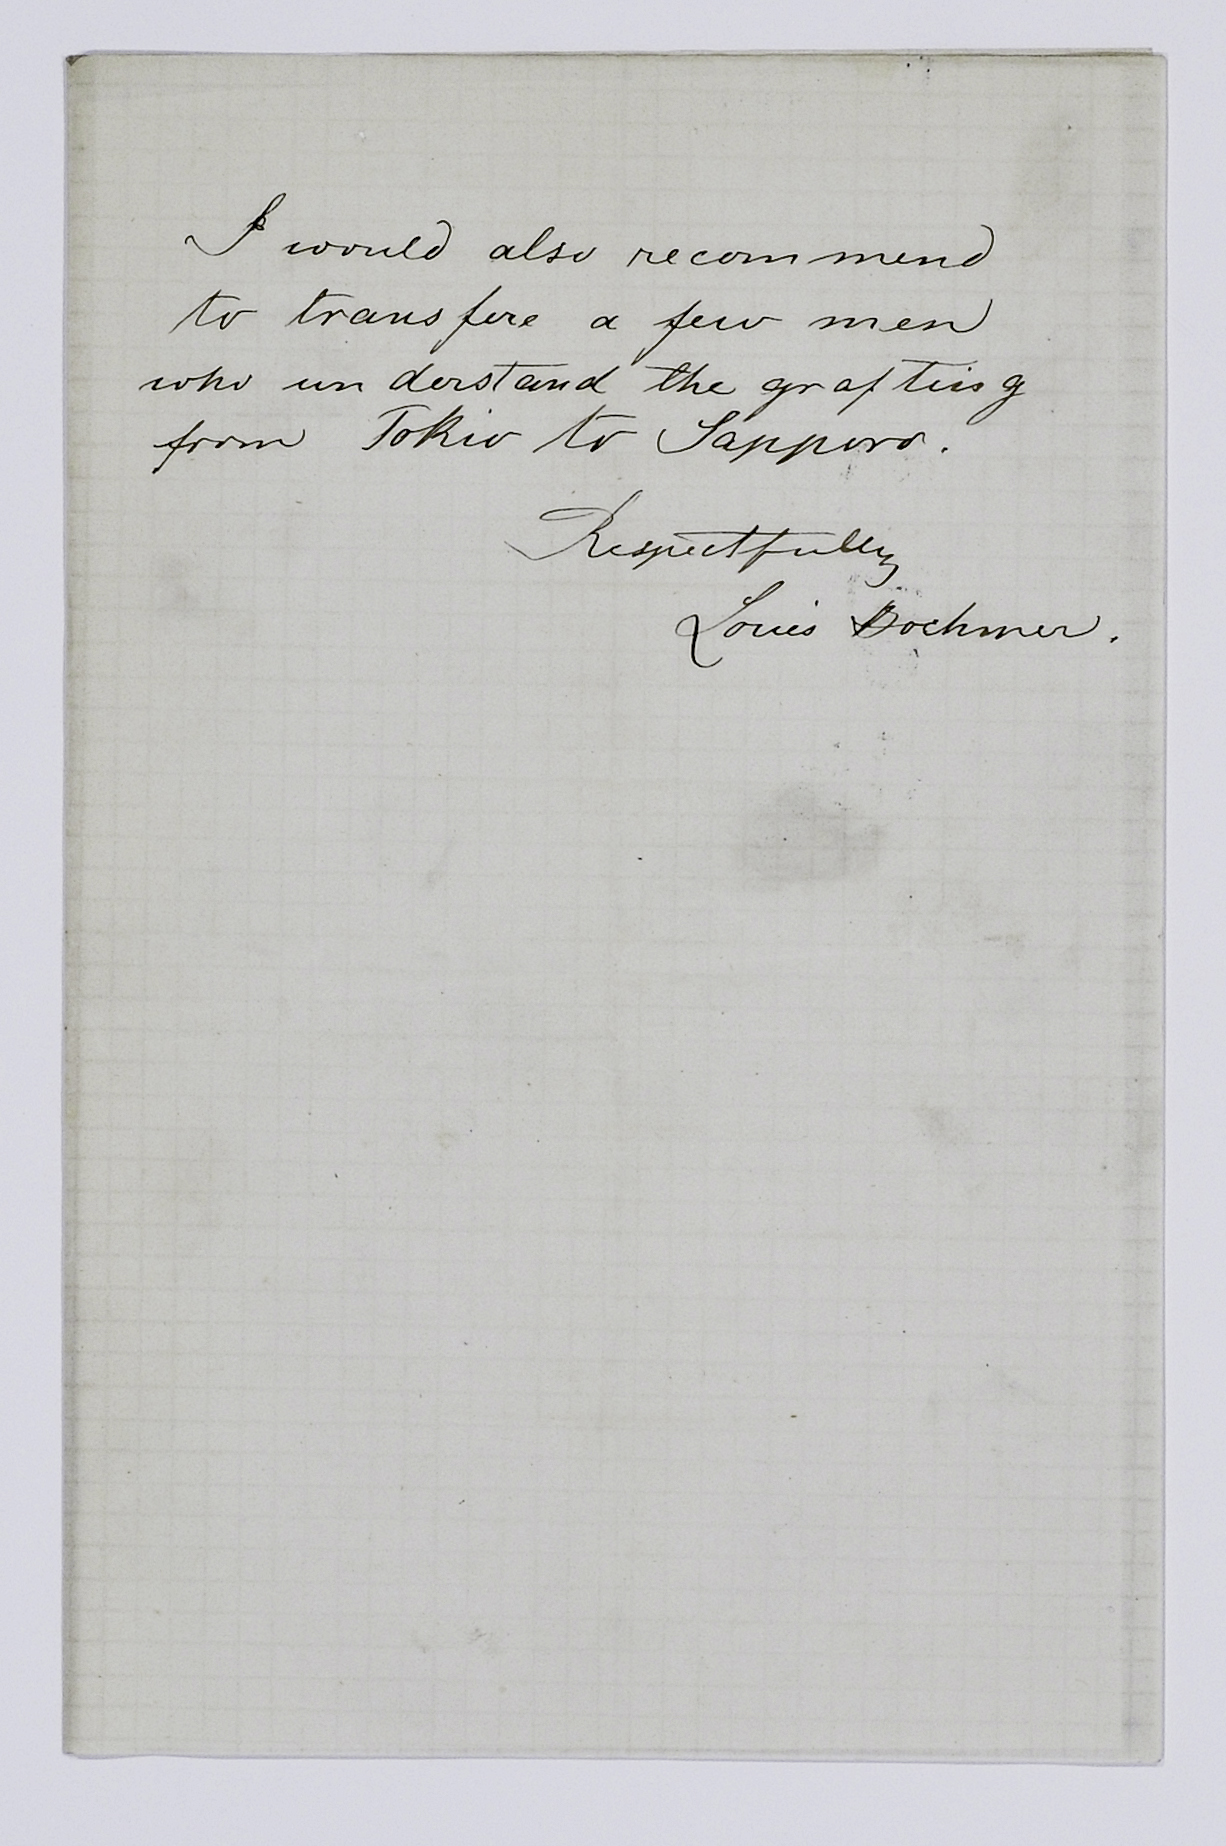 I would also recommend
to transfere a few men
who understand the grafting
from Tokio to Sapporo.
Respectfully
Louis Boehmer.